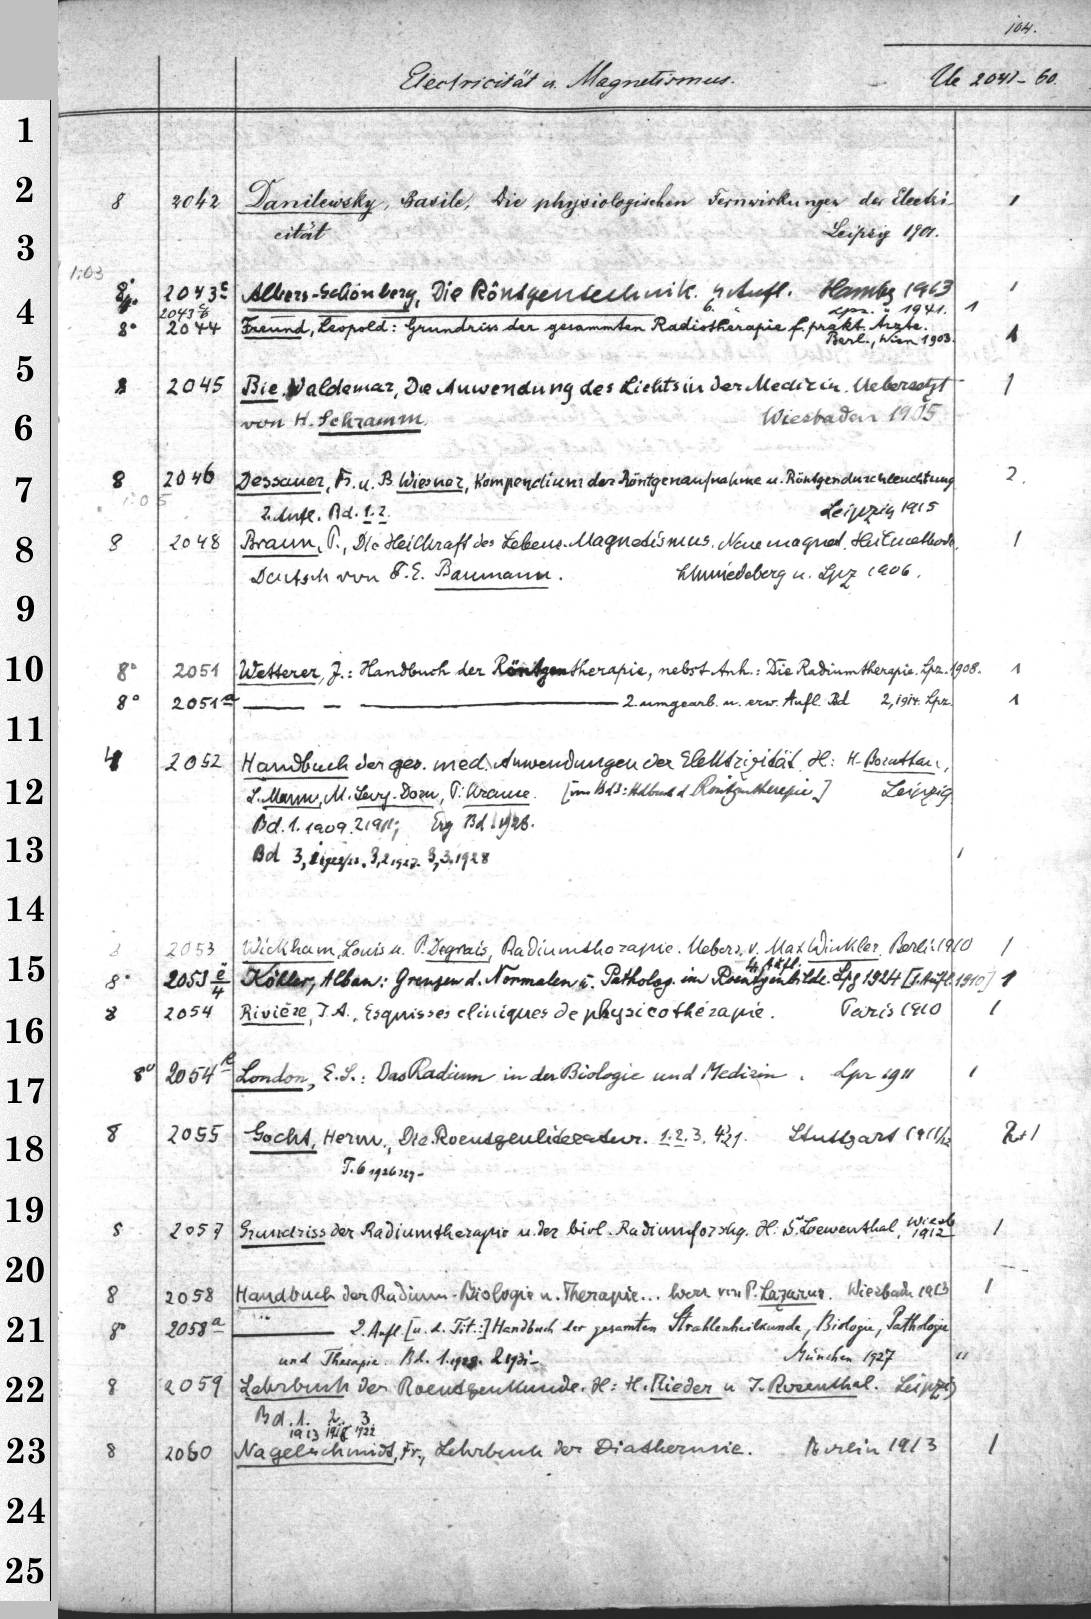 104.
Electricität u. Magnetismus. Ue 2041-60.
8 2042 Danilewsky, Basile, Die physiologischen Fernwirkungen der Electri-
cität Leipzig 1901. 1
1:03
8° 2043c Albers-Schönberg, Die Röntgentechnik. 4 Aufl. Hambg 1913 1
2043c/6 6. " Lpz. 1941. 1
8° 2044 Freund, Leopold: Grundriss der gesammten Radiotherapie f. prakt. Ärzte.
Berl., Wien 1903. 1
8 2045 Bie, Valdemar, Die Anwendung des Lichts in der Medizin. Uebersetzt 1
von H. Schramm. Wiesbaden 1905
8 2046 Dessauer, Fr. u. B. Wiesner, Kompendium der Röntgenaufnahme u. Röntgendurchleuchtung 2.
1:05
2. Aufl. Bd. 1. 2. Leipzig 1915
8 2048 Braun, P., Die Heilkraft des Lebens-Magnetismus. Neue magnet. Heilmethode. 1
Deutsch von F. E. Baumann. Schmiedeberg u. Lpz 1906.
8° 2051 Wetterer, J.: Handbuch der Röntgentherapie, nebst Anh.: Die Radiumtherapie. Lpz. 1908. 1
8° 2051a — — — 2. umgearb. u. erw. Aufl. Bd 2, 1914. Lpz. 1
4 2052 Handbuch der ges. med. Anwendungen der Elektrizität. H: H. Boruttau,
L. Mann, M. Levy-Dorn, P. Krause. [von Bd 3: Hdbuch d. Röntgentherapie] Leipzig
Bd. 1. 1909. 2 1911; Erg Bd 1. 1928.
Bd 3, 1 1922/23. 3,2 1927. 3,3. 1928 1
8 2053 Wickham, Louis u. P. Degrais, Radiumtherapie. Uebers. v. Max Winkler. Berlin 1910 1
4. Aufl.
8° 2053e/4 Köhler, Alban: Grenzen d. Normalen u. Patholog. im Röntgenbilde. Lpg 1924 [1. Aufl. 1910] 1
8 2054 Rivière, J. A., Esquisses cliniques de physicothérapie. Paris 1910 1
8° 2054k London, E. S.: Das Radium in der Biologie und Medizin. Lpz 1911 1
8 2055 Gocht, Herm., Die Roentgenliteratur. 1. 2. 3. 4 1921. Stuttgart 1911/12 2+1
T. 6 1926/27-
8 2057 Grundriss der Radiumtherapie u. der biol. Radiumforschg. H. S. Loewenthal, Wiesb 1912 1
8 2058 Handbuch der Radium-Biologie u. Therapie... hrsg. von P. Lazarus. Wiesbaden 1913 1
8° 2058a — 2. Aufl. [u. d. Tit.:] Handbuch der gesamten Strahlenheilkunde, Biologie, Pathologie
und Therapie. Bd. 1. 1928. 2 1931- München 1927 "
8 2059 Lehrbuch der Roentgenkunde. H: H. Rieder u J. Rosenthal. Leipzig
Bd. 1. 2. 3
1913 1918 1922
8 2060 Nagelschmidt, Fr., Lehrbuch der Diathermie. Berlin 1913 1